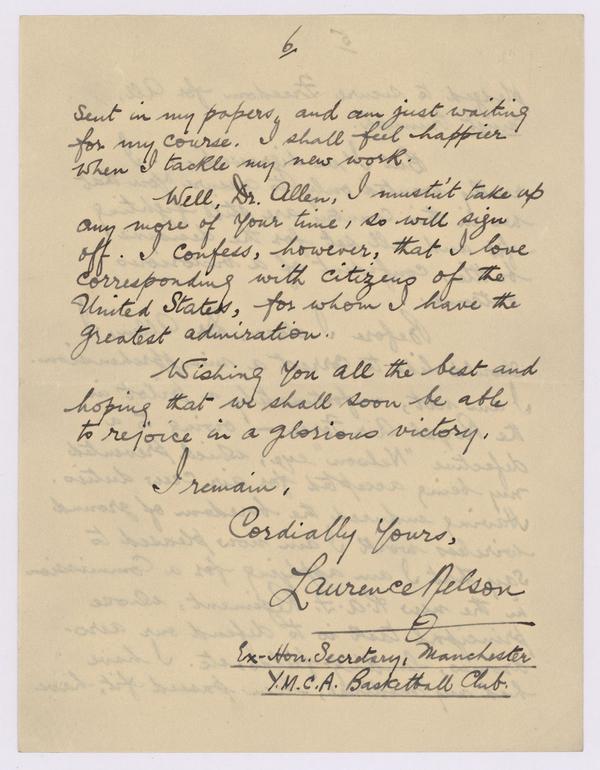 6
sent in my papers, and am just waiting
for my course. I shall feel happier
when I tackle my new work.
Well, Dr. Allen, I mustn't take up
any more of your time, so will sign
off. I confess, however, that I love
corresponding with citizens of the
United States, for whom I have the
greatest admiration.
Wishing you all the best and
hoping that we shall soon be able
to rejoice in a glorious victory,
I remain,
Cordially Yours,
Laurence Nelson
Ex-Hon. Secretary, Manchester
Y.M.C.A. Basketball Club.